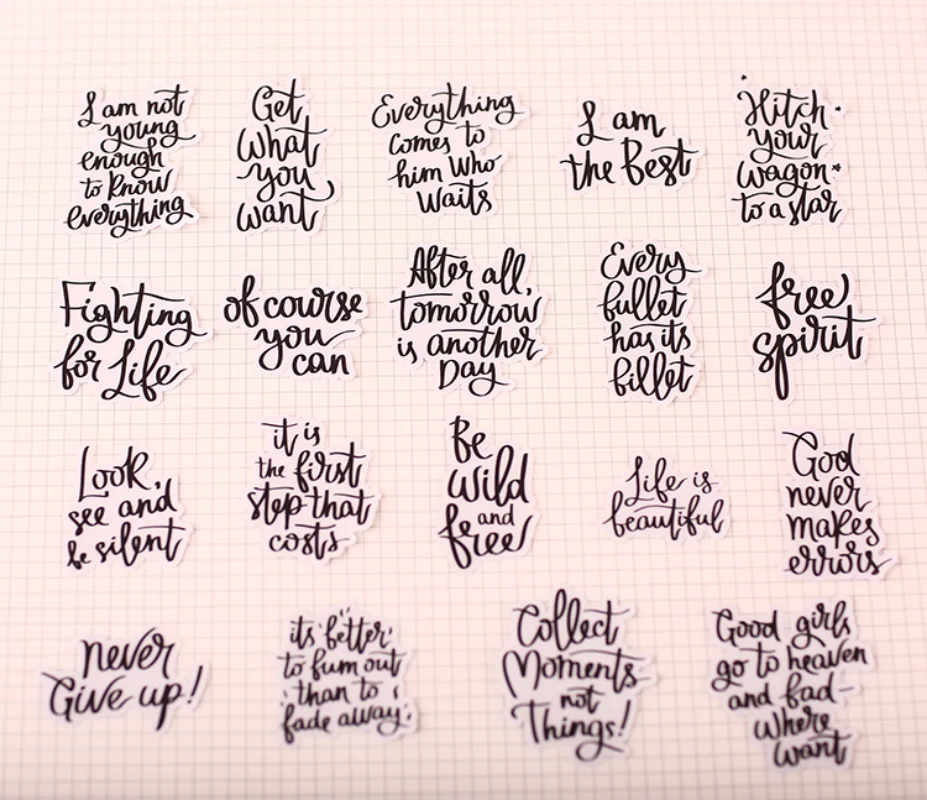 I am not
young
enough
to know
everything
Get
what
you
want
Everything
comes to
him Who
Waits
I am
the Best
Hitch
your
wagon
to a star
Fighting
for Life
of course
you
can
After all,
tomorrow
is another
Day
Every
bullet
has its
billet
free
spirit
Look,
see and
be silent
it is
the first
step that
costs
Be
wild
and
free
Life is
beautiful
God
never
makes
errors
never
Give up!
its better
to burn out
than to
fade away
Collect
Moments
not
Things!
Good girls
go to heaven
and bad-
where
want